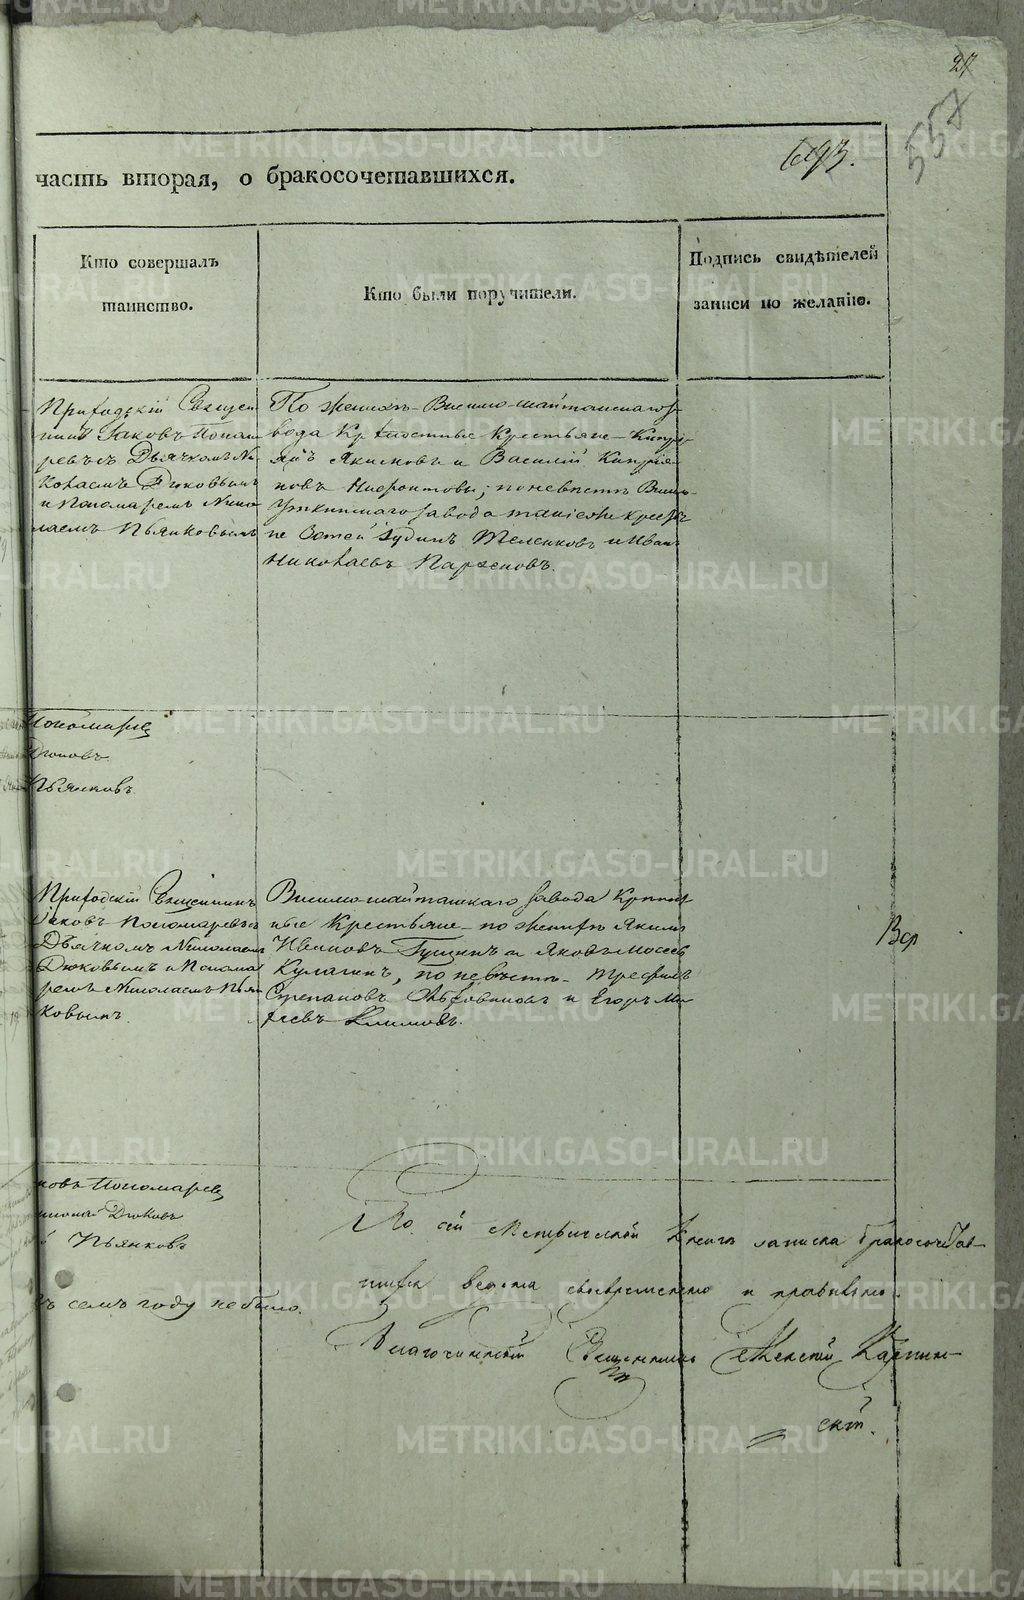 27
557
693.
часть вторая, о бракосочетавшихся.
Кто совершалъ
таинство.
Кто были поручители.
Подпись свидѣтелей
записи по желанію.
Приходскій Священ
никъ Іаковъ Понам
ревъ съ Дьячкомъ Ни
колаемъ Дюковымъ
и Пономаремъ Нико
лаемъ Пьянковымъ
По женихѣ – Висимо-шайтанскаго за
вода Крѣпостные Крестьяне – Кипрі
янъ Якимовъ и Василій Кипрія
новъ Нифонтовы; по невѣстѣ Висимо
Уткинскаго завода такіеже крестья
не Фотей Іудинъ Теленковъ и Иванъ
Николаевъ Парѳеновъ.
Пономаревъ
Дюковъ
Пьянковъ
Приходскій Священникъ
Іаковъ Пономаревъ съ
Дьячкомъ Николаемъ
Дюковымъ и Понома
ремъ Николаемъ Пьян
ковымъ.
Висимо-шайтанскаго завода Крѣпост
ные Крестьяне – по женихѣ Якимъ
Ивановъ Гущинъ и Яковъ Мосеевъ
Кулагинъ, по невѣстѣ – Трефилъ
Степановъ и Егоръ Ма
Климовъ.
ковъ Пономаревъ
Дюковъ
Пьянковъ
ъ семъ году не было.
По сей Метрической Книгѣ записка бракосочетав-
шихся ведена своевременно и правильно.
Благочинный Священникъ Алексѣй Карпин-
скій.
METRIKI.GASO-URAL.RU